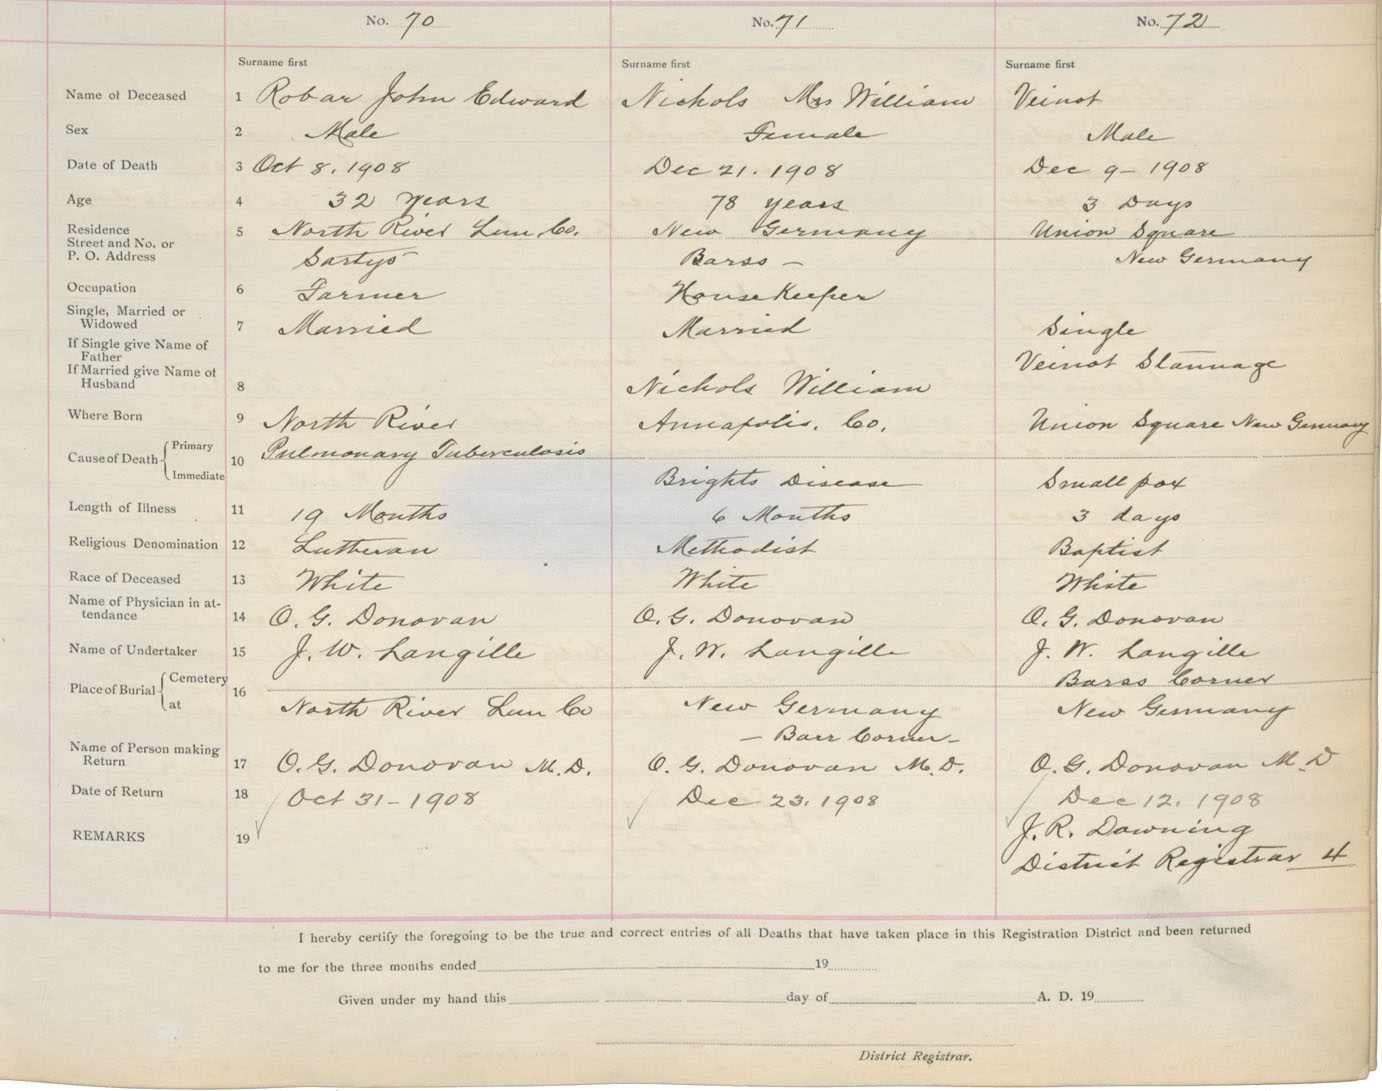 No. 70 No. 71 No. 72
Surname first Surname first Surname first
Name of Deceased 1 Robar John Edward Nichols Mrs William Veinot
Sex 2 Male Female Male
Date of Death 3 Oct 8. 1908 Dec 21. 1908 Dec 9 - 1908
Age 4 32 years 78 years 3 Days
Residence 5 North River Lun. Co. New Germany Union Square
Street and No. or
P. O. Address Barss - New Germany
Occupation 6 Farmer HouseKeeper
Single, Married or
Widowed 7 Married Married Single
If Single give Name of
Father Veinot Stannage
If Married give Name of
Husband 8 Nichols William
Where Born 9 North River Annapolis. Co. Union Square New Germany
Cause of Death Primary 10 Pulmonary Tuberculosis
Immediate Brights Disease Small pox
Length of Illness 11 19 Months 6 Months 3 days
Religious Denomination 12 Lutheran Methodist Baptist
Race of Deceased 13 White White White
Name of Physician in at-
tendance 14 O. G. Donovan O. G. Donovan O. G. Donovan
Name of Undertaker 15 J. W. Langille J. W. Langille J. W. Langille
Place of Burial Cemetery 16 Barss Corner
at North River Lun Co New Germany New Germany
- Barr Corner -
Name of Person making
Return 17 O. G. Donovan M. D. O. G. Donovan M. D. O. G. Donovan M. D
Date of Return 18 Oct 31 - 1908 Dec 23. 1908 Dec 12. 1908
REMARKS 19 J. R. Downing
District Registrar 4
I hereby certify the foregoing to be the true and correct entries of all Deaths that have taken place in this Registration District and been returned
to me for the three months ended 19
Given under my hand this day of A. D. 19
District Registrar.